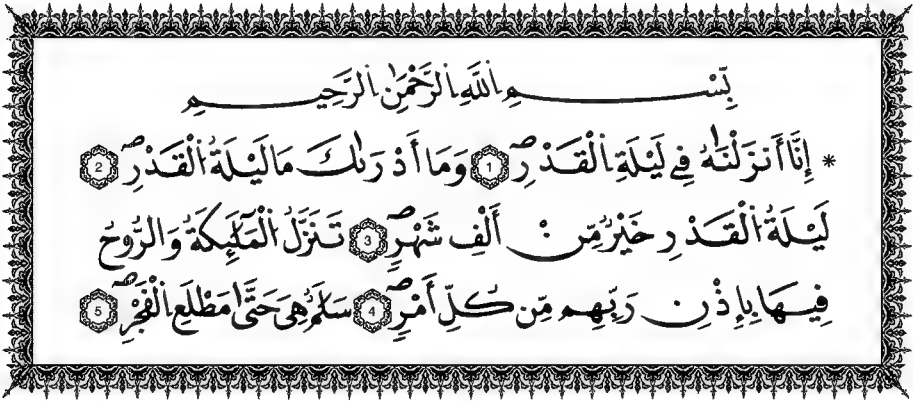 بِسْمِ اِ۬للَّهِ اِ۬لرَّحْمَٰنِ اِ۬لرَّحِيمِ
* إِنَّا أَنزَلْنَٰهُ فِے لَيْلَةِ اِ۬لْقَدْرِۖ 1 وَمَا أَدْر۪ىٰكَ مَا لَيْلَةُ اُ۬لْقَدْرِۖ 2
لَيْلَةُ اُ۬لْقَدْرِ خَيْرٞ مِّنْ أَلْفِ شَهْرٖۖ 3 تَنَزَّلُ اُ۬لْمَلَٰٓئِكَةُ وَالرُّوحُ
فِيهَا بِإِذْنِ رَبِّهِم مِّن كُلِّ أَمْرٖۖ 4 سَلَٰمٌ هِيَ حَتَّىٰ مَطْلَعِ اِ۬لْفَجْرِۖ 5